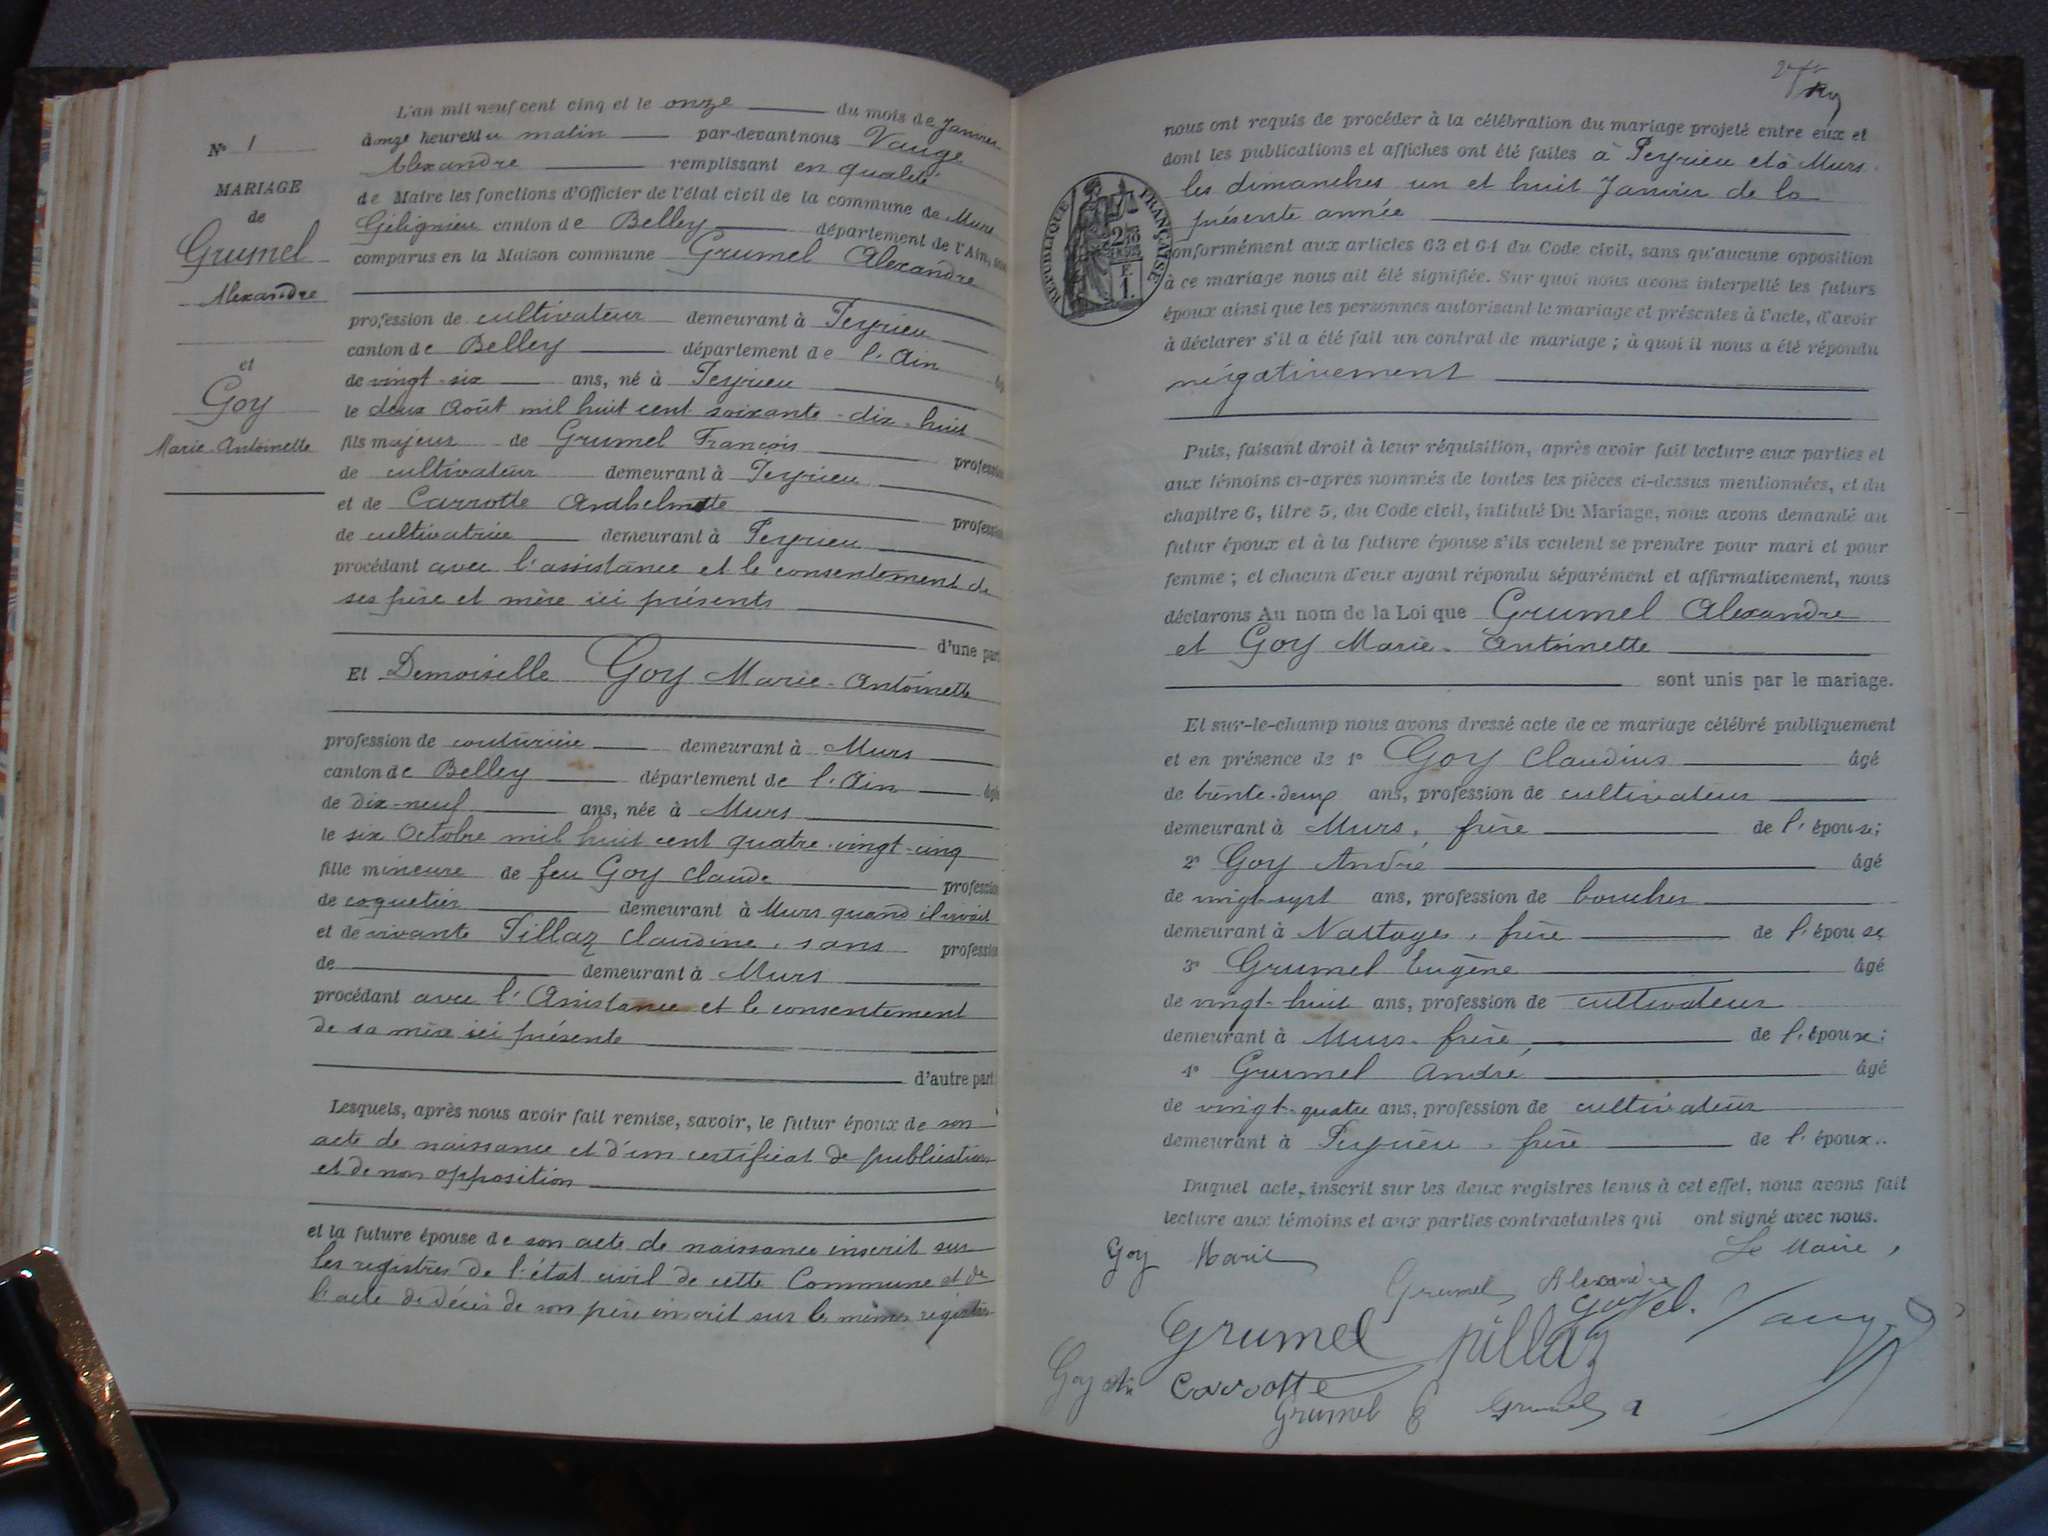 N° 1
MARIAGE
de
Grumel
Alexandre
et
Goy
Marie-Antoinette
L'an mil neuf cent cinq et le onze du mois de Janvier
à onze heures du matin par-devant nous Vauge
Alexandre remplissant en qualité
de Maire les fonctions d'Officier de l'état civil de la commune de Murs
Gélignieu canton de Belley département de l'Ain, sont
comparus en la Maison commune Grumel Alexandre
profession de cultivateur demeurant à Peyrieu
canton de Belley département de l'Ain
de vingt-six ans, né à Peyrieu
le deux Août mil huit cent soixante-dix-huit
fils majeur de Grumel François profession
de cultivateur demeurant à Peyrieu
et de Carrotte Anthelmette profession
de cultivatrice demeurant à Peyrieu
procédant avec l'assistance et le consentement de
ses père et mère ici présents
d'une part
Et Demoiselle Goy Marie-Antoinette
profession de couturière demeurant à Murs
canton de Belley département de l'Ain âgée
de dix-neuf ans, née à Murs
le six Octobre mil huit cent quatre-vingt-cinq
fille mineure de feu Goy Claude profession
de coquetier demeurant à Murs quand il vivait
et de vivante Pillaz Claudine, sans profession
de demeurant à Murs
procédant avec l'Assistance et le consentement
de sa mère ici présente
d'autre part
Lesquels, après nous avoir fait remise, savoir, le futur époux de son
acte de naissance et d'un certificat de publication
et de non opposition
et la future épouse de son acte de naissance inscrit sur
les registres de l'état civil de cette Commune et de
l'acte de décès de son père inscrit sur le même registre
nous ont requis de procéder à la célébration du mariage projeté entre eux et
dont les publications et affiches ont été faites à Peyrieu et à Murs
les dimanches un et huit Janvier de la
présente année
REPUBLIQUE FRANÇAISE
conformément aux articles 63 et 64 du Code civil, sans qu'aucune opposition
à ce mariage nous ait été signifiée. Sur quoi nous avons interpellé les futurs
époux ainsi que les personnes autorisant le mariage et présentes à l'acte, d'avoir
à déclarer s'il a été fait un contrat de mariage ; à quoi il nous a été répondu
négativement
Puis, faisant droit à leur réquisition, après avoir fait lecture aux parties et
aux témoins ci-après nommés de toutes les pièces ci-dessus mentionnées, et du
chapitre 6, titre 5, du Code civil, intitulé Du Mariage, nous avons demandé au
futur époux et à la future épouse s'ils veulent se prendre pour mari et pour
femme ; et chacun d'eux ayant répondu séparément et affirmativement, nous
déclarons Au nom de la Loi que Grumel Alexandre
et Goy Marie-Antoinette
sont unis par le mariage.
Et sur-le-champ nous avons dressé acte de ce mariage célébré publiquement
et en présence de 1° Goy Claudius âgé
de trente-deux ans, profession de cultivateur
demeurant à Murs, frère de l'épouse;
2° Goy André âgé
de vingt-sept ans, profession de boucher
demeurant à Nattages, frère de l'épouse
3° Grumel Eugène âgé
de vingt-huit ans, profession de cultivateur
demeurant à Murs, frère, de l'époux;
4° Grumel André, âgé
de vingt-quatre ans, profession de cultivateur
demeurant à Peyrieu, frère de l'époux.
Duquel acte, inscrit sur les deux registres tenus à cet effet, nous avons fait
lecture aux témoins et aux parties contractantes qui ont signé avec nous.
Goy Marie
Le Maire,
Grumel Alexandre
Goy Cl.
Vauge
Grumel
Pillaz
Goy
Carrotte
Grumel E
Grumel a